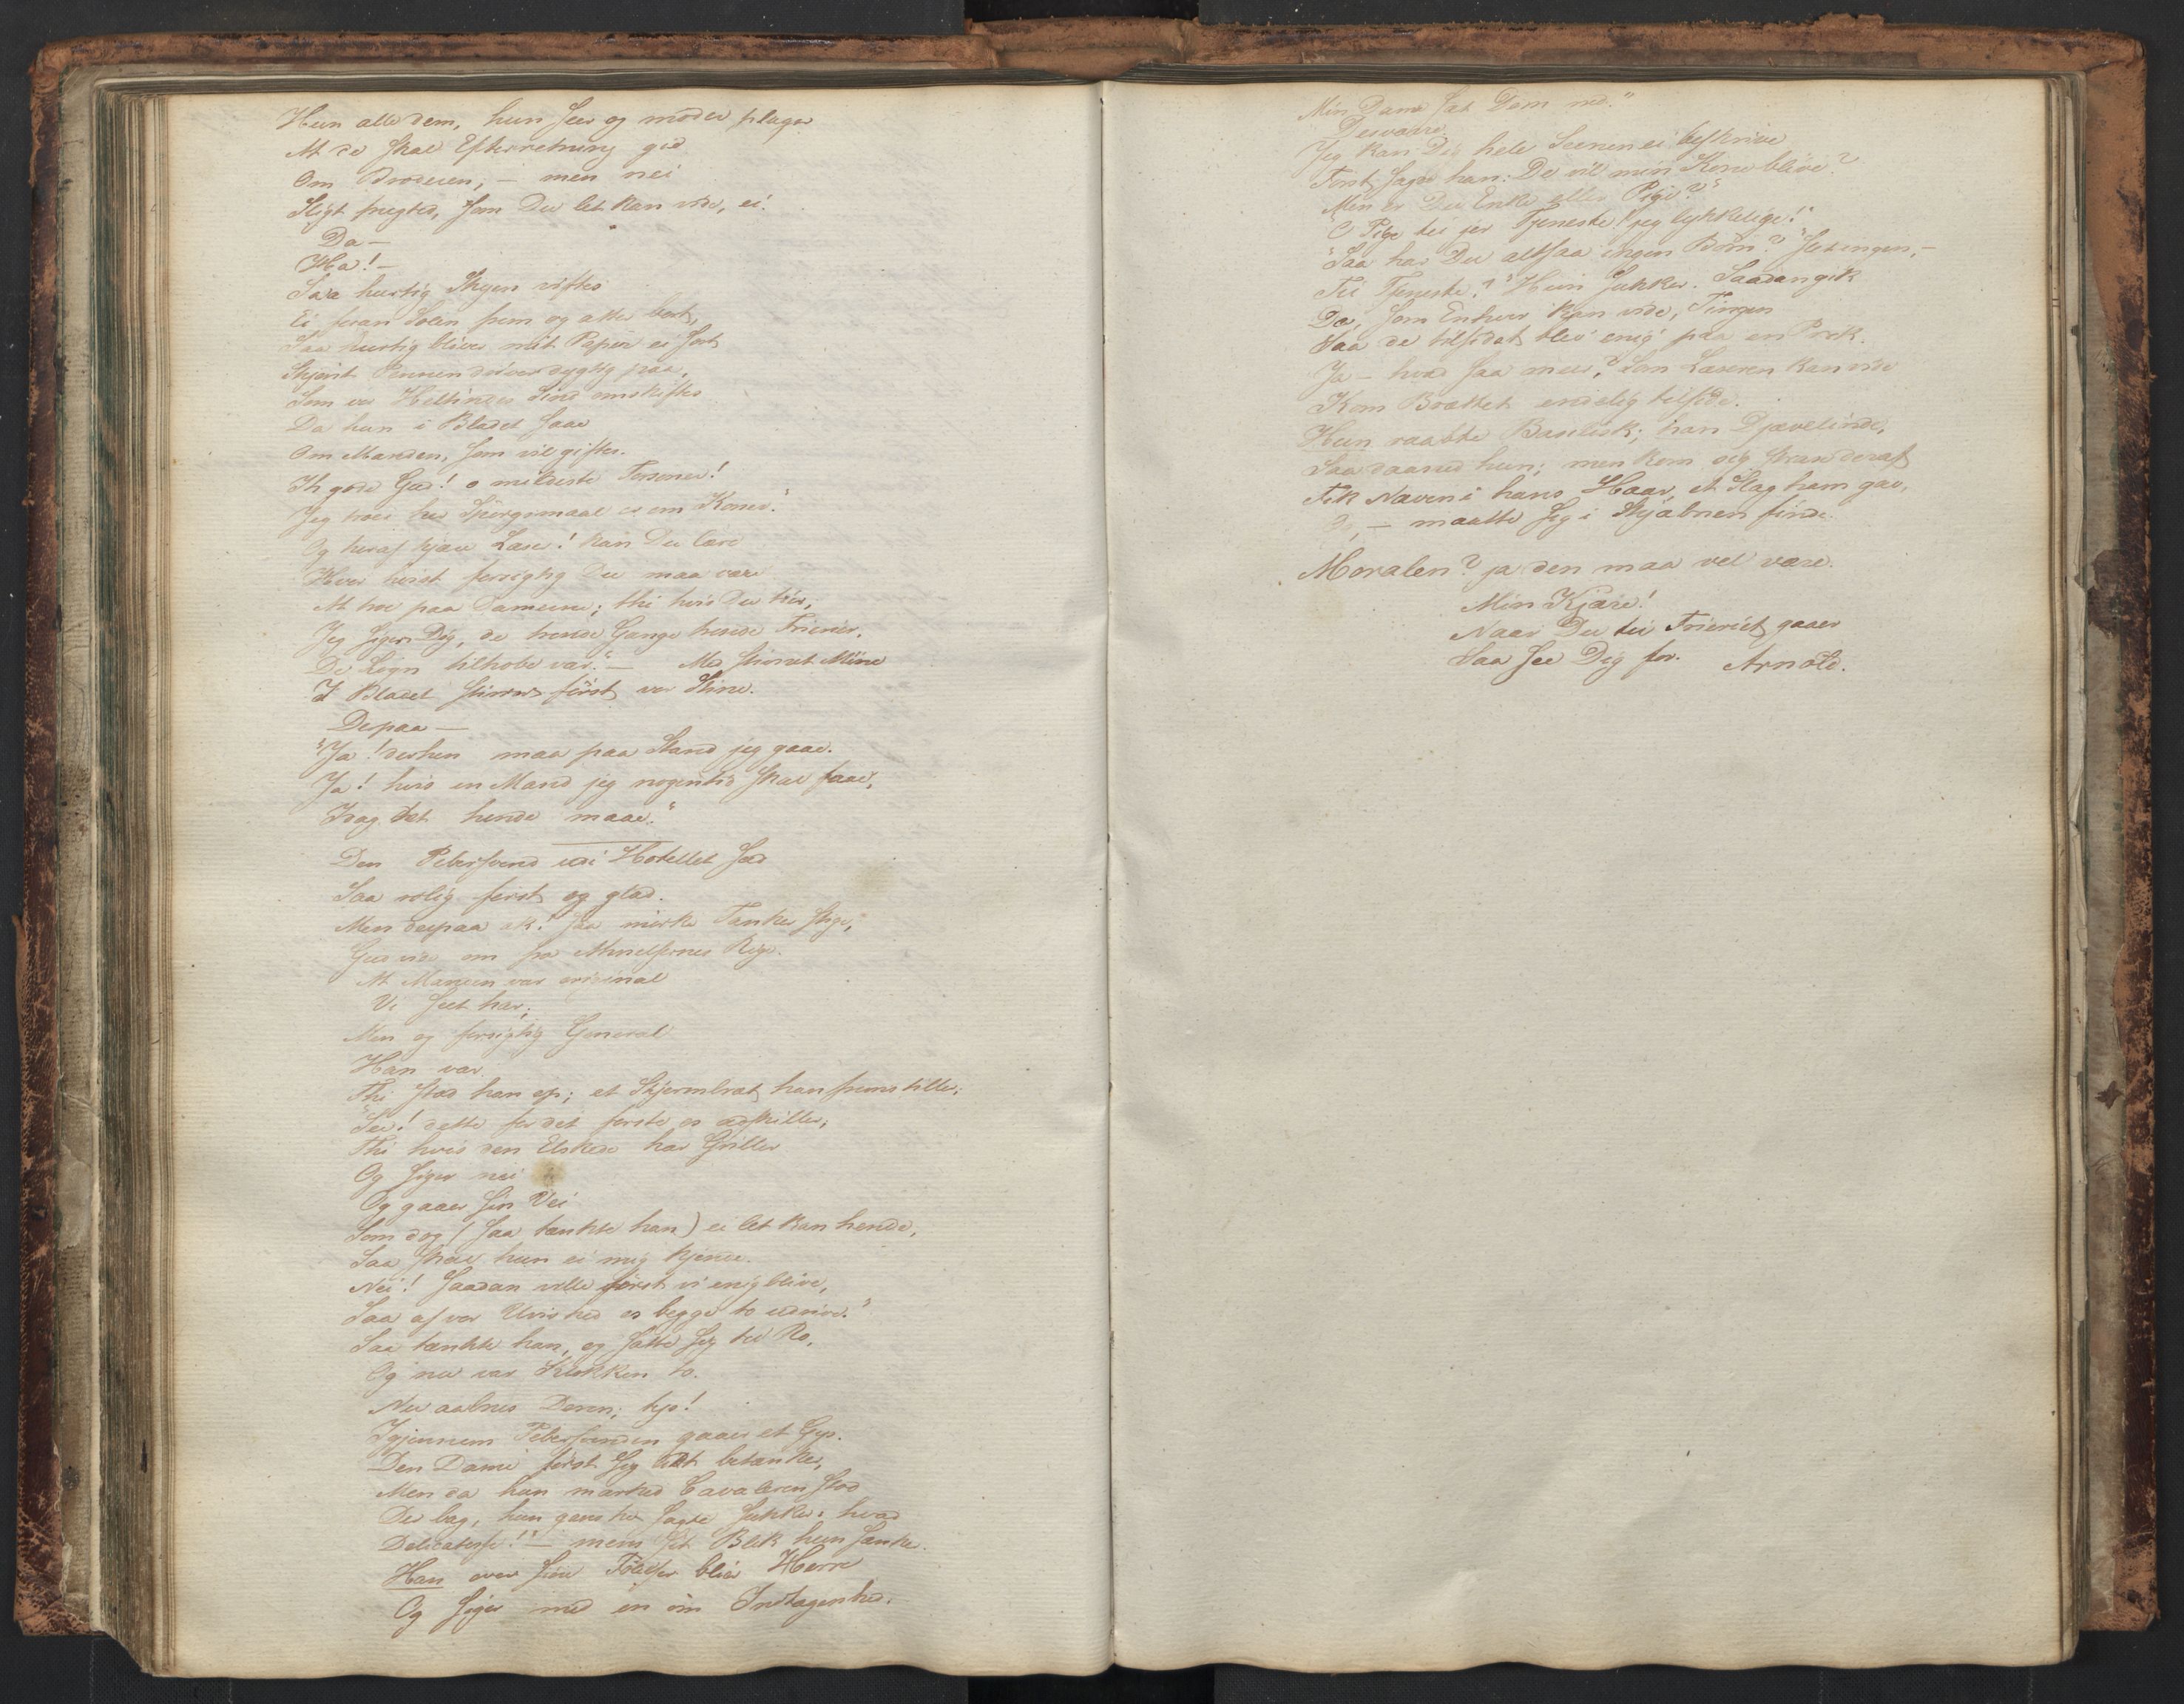 Hun alle dem, hun seer og møder plager
At de skal Efterretning gid
Om Broderen, — men nei
Sligt frugted, som Du let kan vide, ei.
Da —
Ha! —
Saa hurtig Skyen viftes
Ei foran Solen frem og atter bort,
Saa hurtig bliver mit Papir ei sort
Skjønt Pennen derover dygtig paa,
Som vor Heltindes Sind omskiftes
Da hun i Bladet saae
Om Manden, som vil giftes.
Ih gode Gud! o mildeste Personer!
Jeg troer her Spørgsmaal er om Koner."
Og heraf kjære Læser! kan Du lære
Hvor høist forsigtig Du maa være
At troe paa Damerne; thi hvis Du troer,
Jeg siger Dig, de trende Gange trende Frierier,
De Løgn tilhobe var." — Med stivnet Mine
I Bladet stirrer først vor Stine.
Derpaa —
"Ja! derhen maa paa Stand jeg gaae.
Ja! hvis en Mand jeg nogentid skal faae,
Idag det hende maae."
Den Pebersvend udi Hotellet sad
Saa rolig først og glad.
Men derpaa ak! saa mørke Tanker stige,
Gud vide om fra Afmelsernes Rige.
At Manden var original
Vi seet har;
Men og forsigtig General
Han var.
Thi stod han op; et Skjermbræt han fremstiller;
"See! dette for det første os adskiller,
Thi hvis den Elskede har Griller
Og siger nei
Og gaaer sin Vei
Som dog (saa tænkte han) ei let kan hende,
Saa skal hun ei mig kjende.
Nei! saadan ville først vi enig blive,
Saa af vor Uvished os begge to uddrive."
Saa tænkte han, og satte sig til Ro,
Og nu var Klokken to.
Nu aabnes Døren; tys!
Igjennem Pebersvenden gaaer et Gys.
Den Dame først sig lidt betænker,
Men da hun mærked Cavaleren stod
Der bag, hun ganske sagte sukker: hvad
Delicatesse!" — mens sit Blik hun sænker.
Han over sine Følelser bliver Herre
Og siger med en øm Indtagenhed.
Min Dame sæt Dem ned."
Desværre
Jeg kan Dig hele Scenen ei beskrive
Først sagde han: De vil min Kone blive?
Men er Du Enke eller Pige?"
"O Pige til jer Tjeneste! jeg lykkelige!"
"Saa har Du altsaa ingen Børn?" "Jo ingen, —
Til Tjeneste?" Hun sukker. Saadan gik
Da, som Enhver kan vide, Tingen
Saa de tilsidst blev enig paa en Prik.
Ja — hvad saa meer? Som Læseren kan vide
Kom Brættet endelig tilside.
Hun raabte Basilisk; han Djævelinde,
Saa daaned hun; men kom sig strax deraf
Fik Næven i hans Haar, et Slag ham gav,
Og, — maatte sig i Skjæbnen finde.
Moralen? ja den maa vel være.
Min Kjære!
Naar Du til Frieriet gaaer
Saa see Dig for. Arnold.